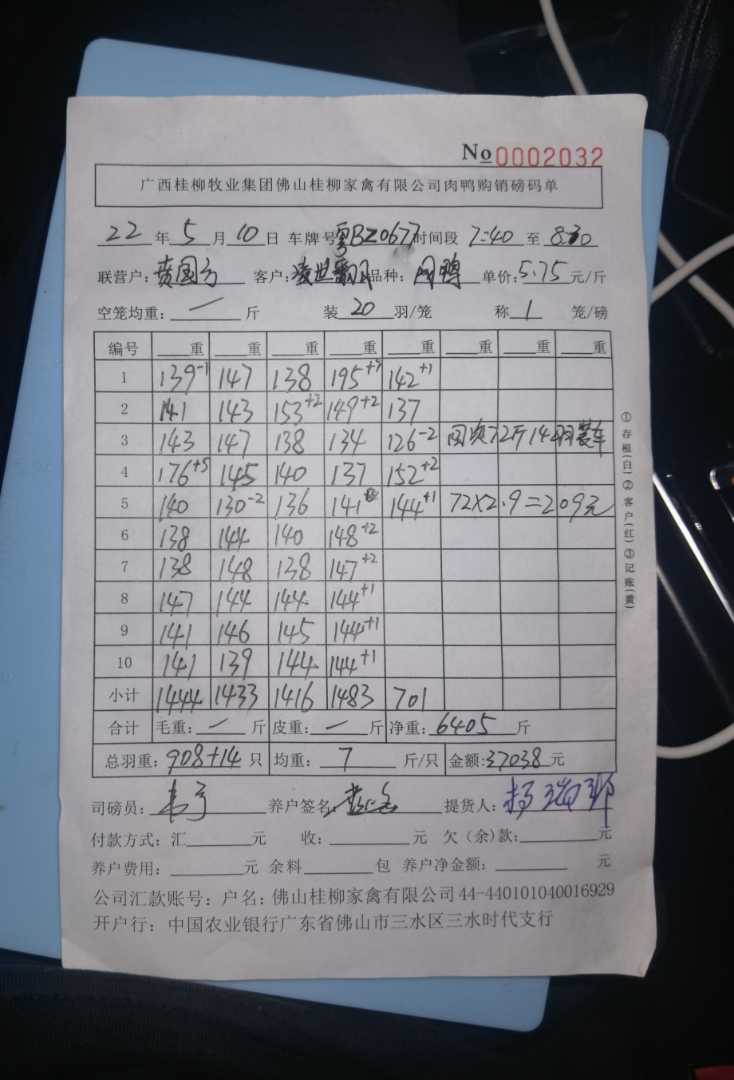 No 0002032
广西桂柳牧业集团佛山桂柳家禽有限公司肉鸭购销磅码单
22 年 5 月 10 日 车牌号 粤BZ0677 时间段 7:40 至 8:30
联营户: 黄国 客户: 品种: 肉鸭 单价: 5.75 元/斤
空笼均重: — 斤 装 20 羽/笼 称 1 笼/磅
编号 重 重 重 重 重 重 重 重
1 139-1 147 138 195+7 142+1
2 141 143 153+2 149+2 137
3 143 147 138 134 126-2 因次72斤14羽装车
4 176+5 145 140 137 152+2
5 140 130-2 136 141 144+1 72×2.9=209元
6 138 144 140 148+2
7 138 148 138 147+2
8 147 144 144 144+1
9 141 146 145 144+1
10 141 139 144 144+1
小计 1444 1433 1416 1483 701
合计 毛重: — 斤 皮重: — 斤 净重: 6405 斤
总羽重: 908+14 只 均重: 7 斤/只 金额: 37038 元
司磅员: 养户签名: 提货人: 杨瑞
付款方式: 汇 元 收: 元 欠(余)款: 元
养户费用: 元 余料 包 养户净金额: 元
公司汇款账号: 户名: 佛山桂柳家禽有限公司 44-440101040016929
开户行: 中国农业银行广东省佛山市三水区三水时代支行
①存根(白)②客户(红)③记账(黄)